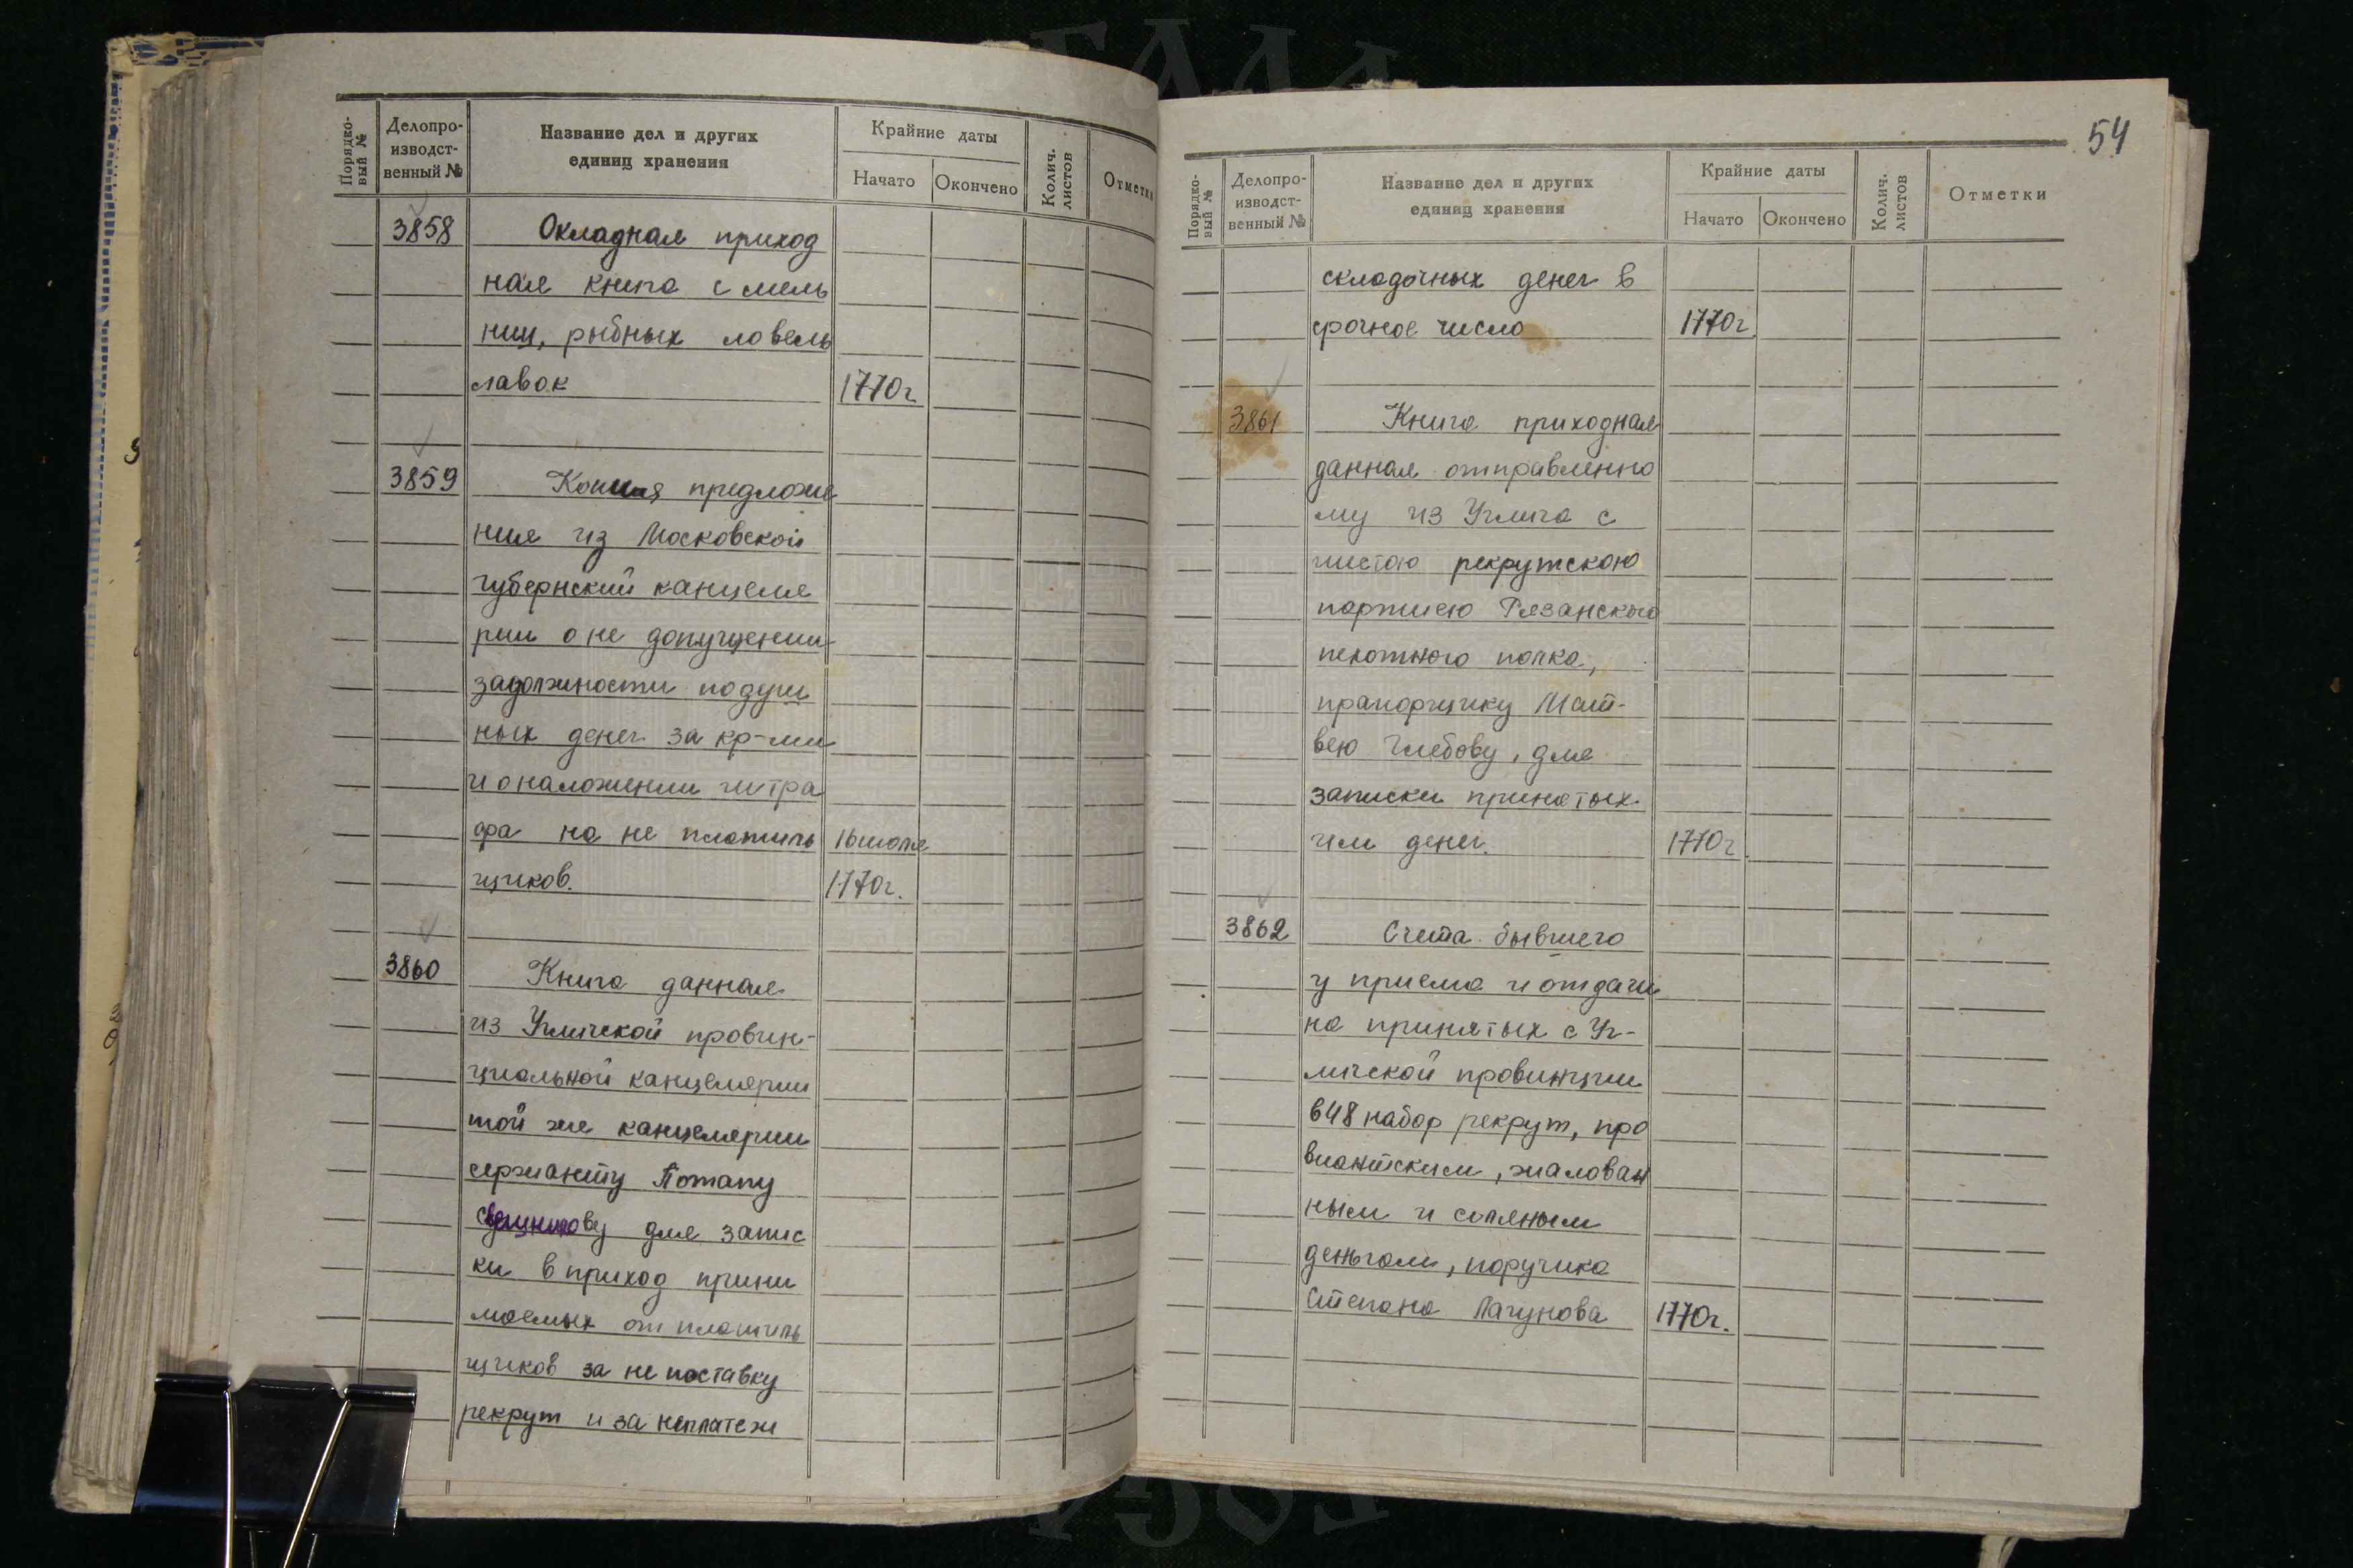 Порядко-
вый №
Делопро-
изводст-
венный №
Название дел и других
единиц хранения
Крайние даты
Начато
Окончено
Колич.
листов
Отметки
3858
Окладная приход
ная книга с мель
ниц, рыбных ловель
лавок
1770г
3859
Копия предложе
ния из Московской
губернский канцеля
рии о не допущении
задолжности подуш
ных денег за кр-ми
и о наложении штра
фа на не платиль
16 июля
щиков.
1770г.
3860
Книга данная
из Угличской провин-
циальной канцелярии
той же канцелярии
сержанту Потапу
для запис
ки в приход прини
маемых от платиль
щиков за не поставку
рекрут и за неплатеж
54
Порядко-
вый №
Делопро-
изводст-
венный №
Название дел и других
единиц хранения
Крайние даты
Начато
Окончено
Колич.
листов
Отметки
складочных денег в
срочное число
1770г.
3861
Книга приходная
данная отправленно
му из Углича с
шестою рекрутскою
партиею Рязанского
пехотного полка,
прапорщику Мат-
вею Глебову, для
записки принятых
им денег.
1770г.
3862
Счета бывшего
у приема и отдачи
на принятых с Уг-
личской провинции
в 48 набор рекрут, про
виантским, жалован
ным и соляным
деньгам, поручика
Степана Лагунова
1770г.